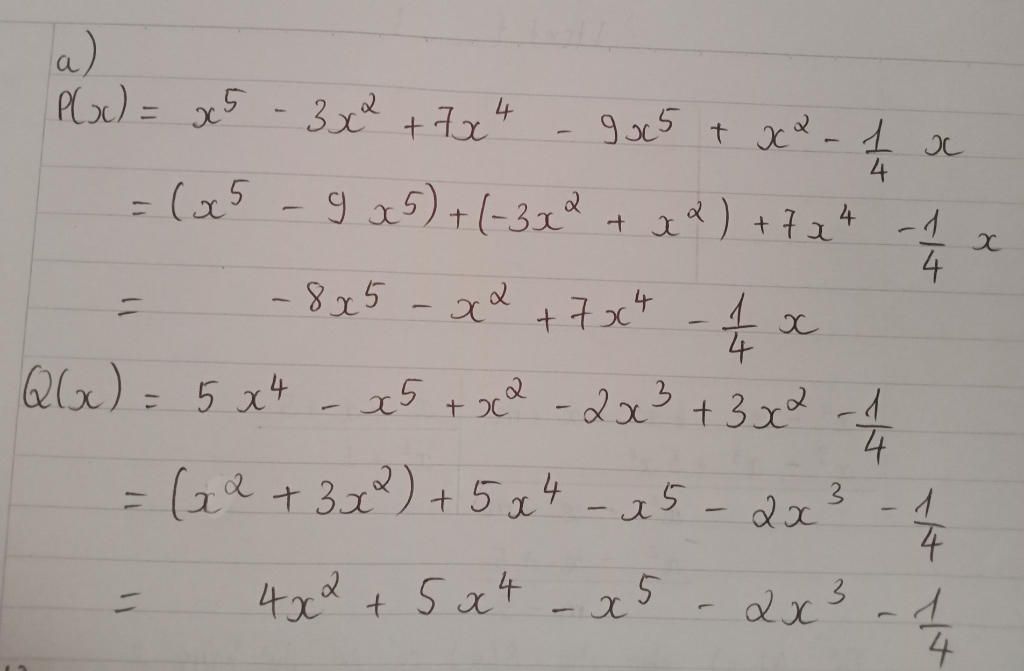 a)
P(x) = x⁵ - 3x² + 7x⁴ - 9x⁵ + x² - 1/4 x
= (x⁵ - 9x⁵) + (-3x² + x²) + 7x⁴ - 1/4 x
= -8x⁵ - x² + 7x⁴ - 1/4 x
Q(x) = 5x⁴ - x⁵ + x² - 2x³ + 3x² - 1/4
= (x² + 3x²) + 5x⁴ - x⁵ - 2x³ - 1/4
= 4x² + 5x⁴ - x⁵ - 2x³ - 1/4